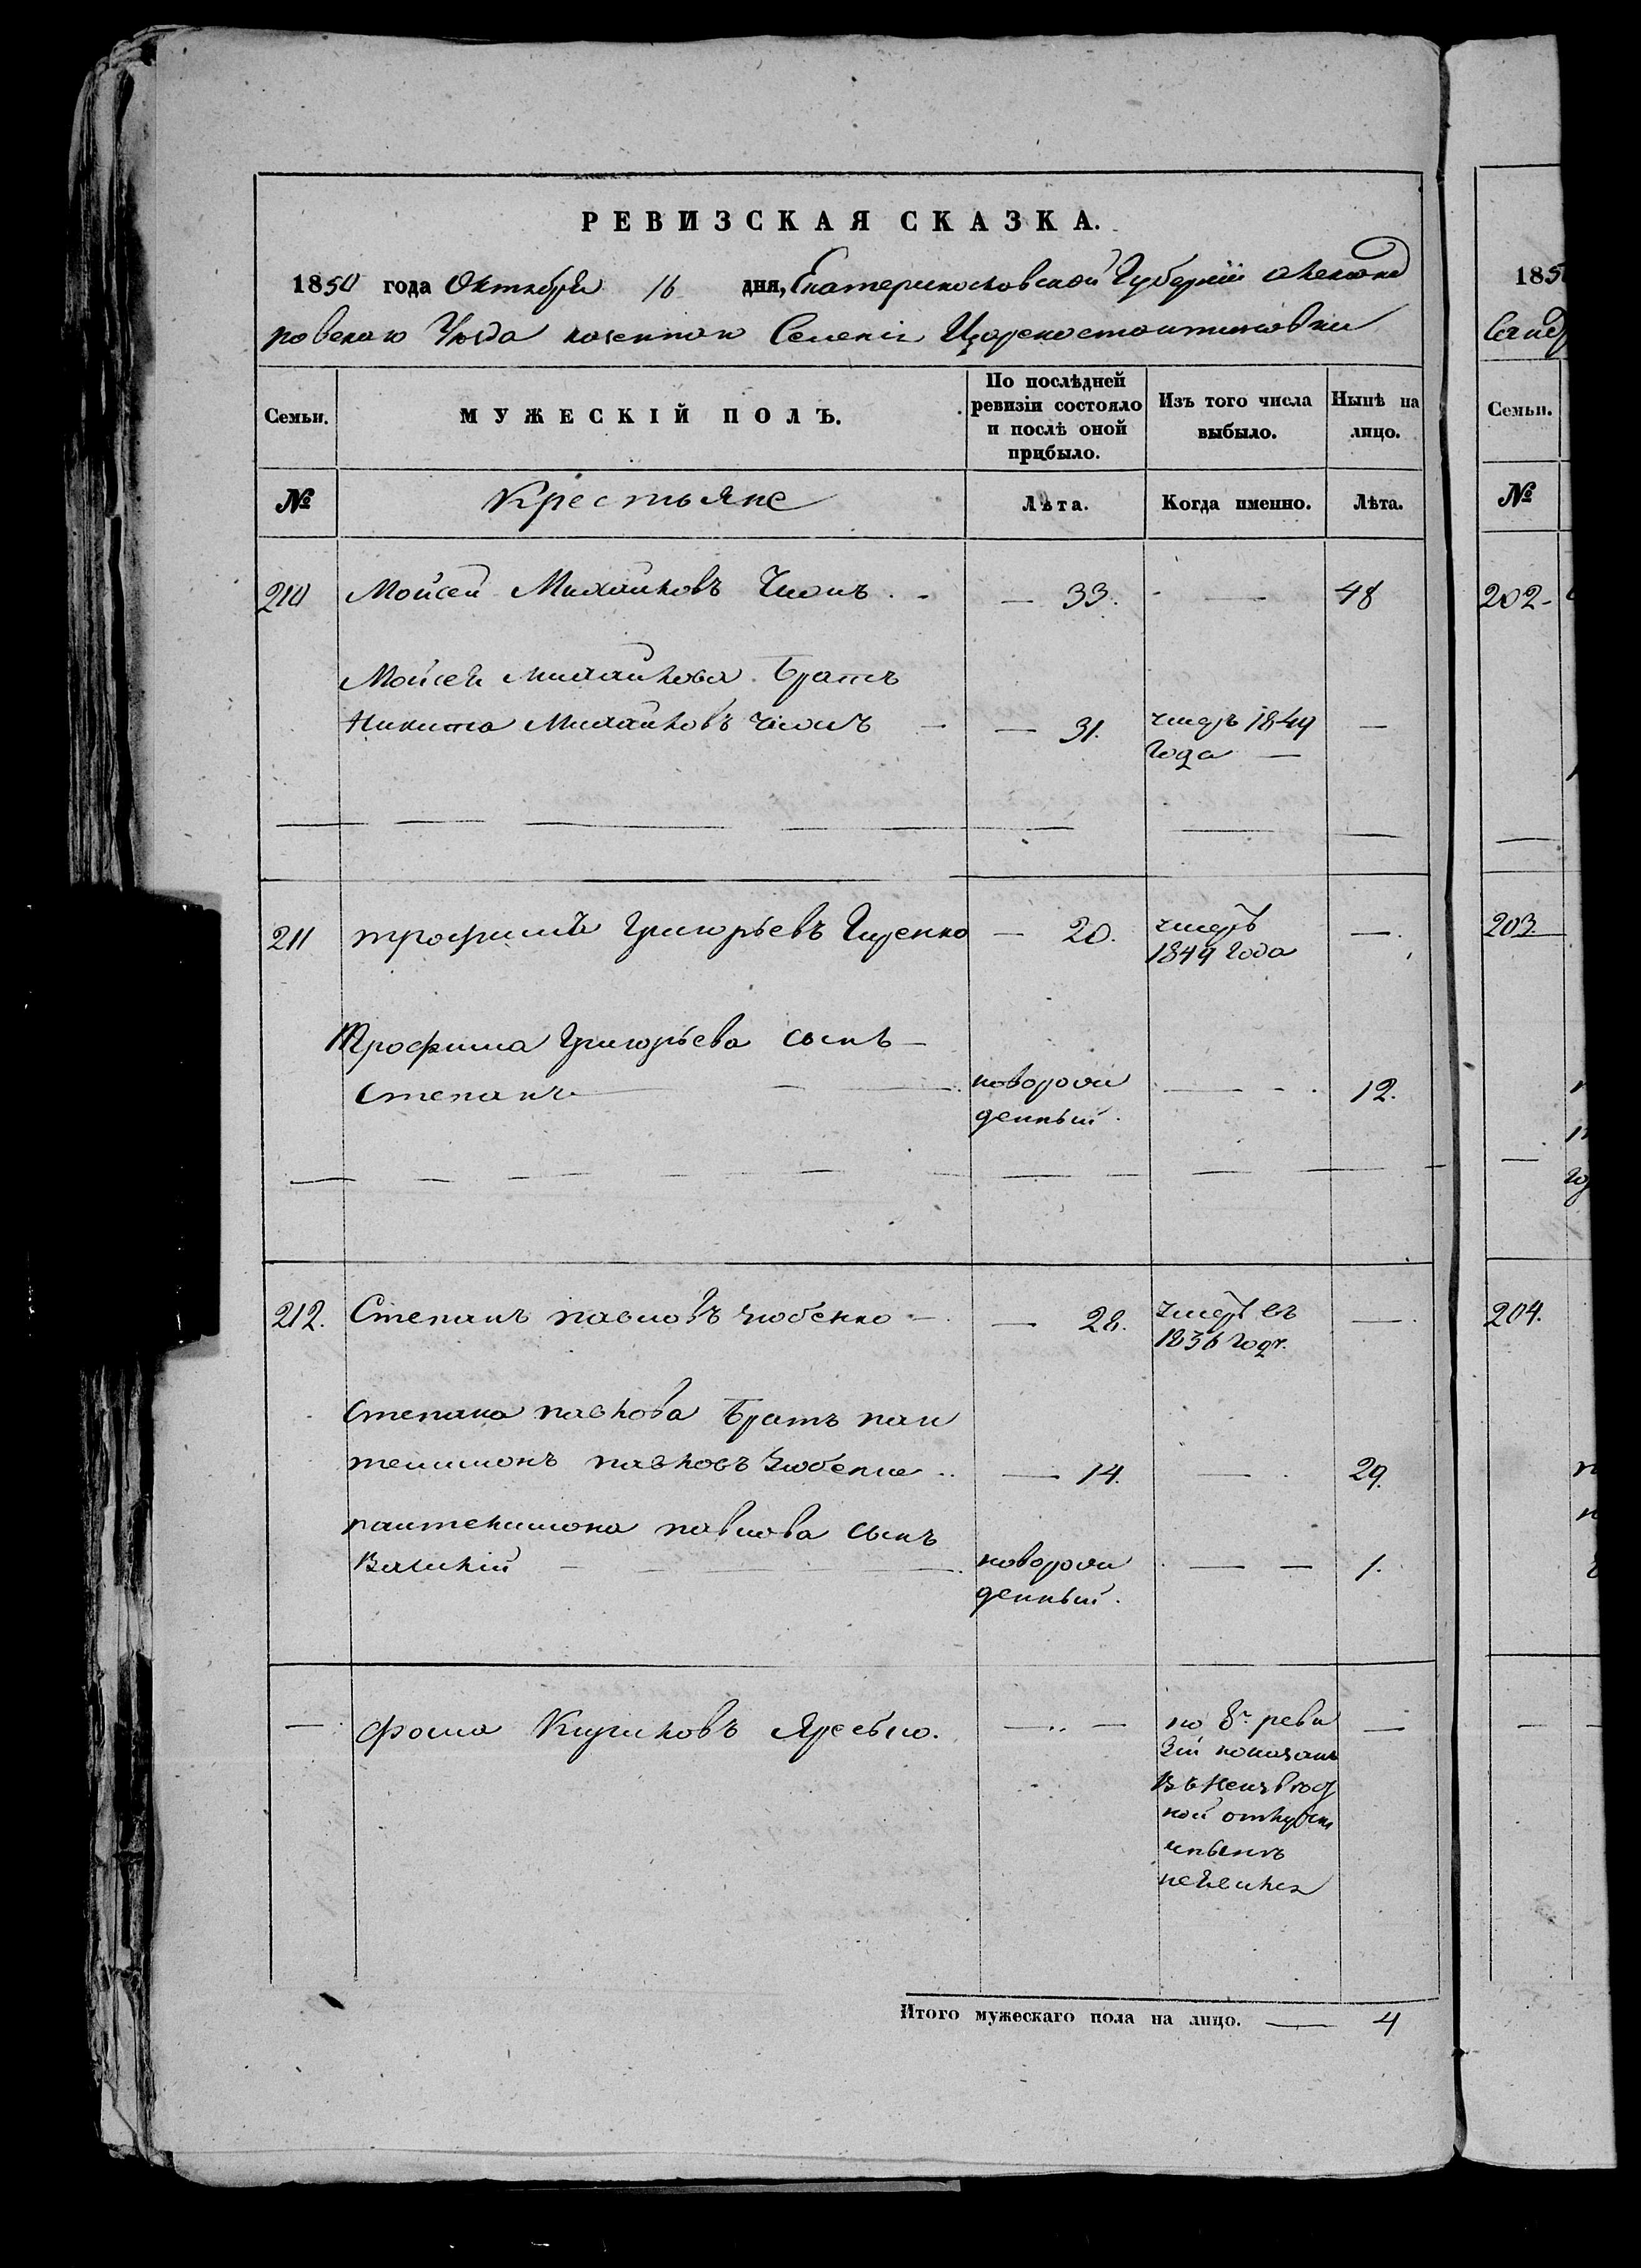 РЕВИЗСКАЯ СКАЗКА.
1850 года Октября 16 дня, Екатеринославской Губерніи Александ
ровскаго Уезда казеннаго Селенія Цареконстантиновки
Семьи.
МУЖЕСКІЙ ПОЛЪ.
По послѣдней
ревизіи состояло
и послѣ оной
прибыло.
Изъ того числа
выбыло.
Нынѣ на
лицо.
№
Крестьяне
Лѣта.
Когда именно.
Лѣта.
210 Мойсей Михайловъ — 33. — 48
Мойсея Михайлова Братъ
Никита Михайловъ — 31. умеръ 1849 —
года —
211 трофимъ Григорьевъ — 20. умеръ —
1849 года
Трофима Григорьева сынъ —
Степанъ — новорож — 12.
денный.
212. Степанъ павловъ Зюбенко — 28. умеръ въ —
1836 годѣ.
Степана павлова Братъ пан
телимонъ павловъ Зюбенко — 14. — 29.
пантелимона павлова сынъ
Василій — новорож — — 1.
денный.
— фома Кириловъ — по 8й реви —
зіи показанъ
въ неизвѣст
ной отлуч
Итого мужескаго пола на лицо. — 4
185
Семьи.
№
202-
203
204.